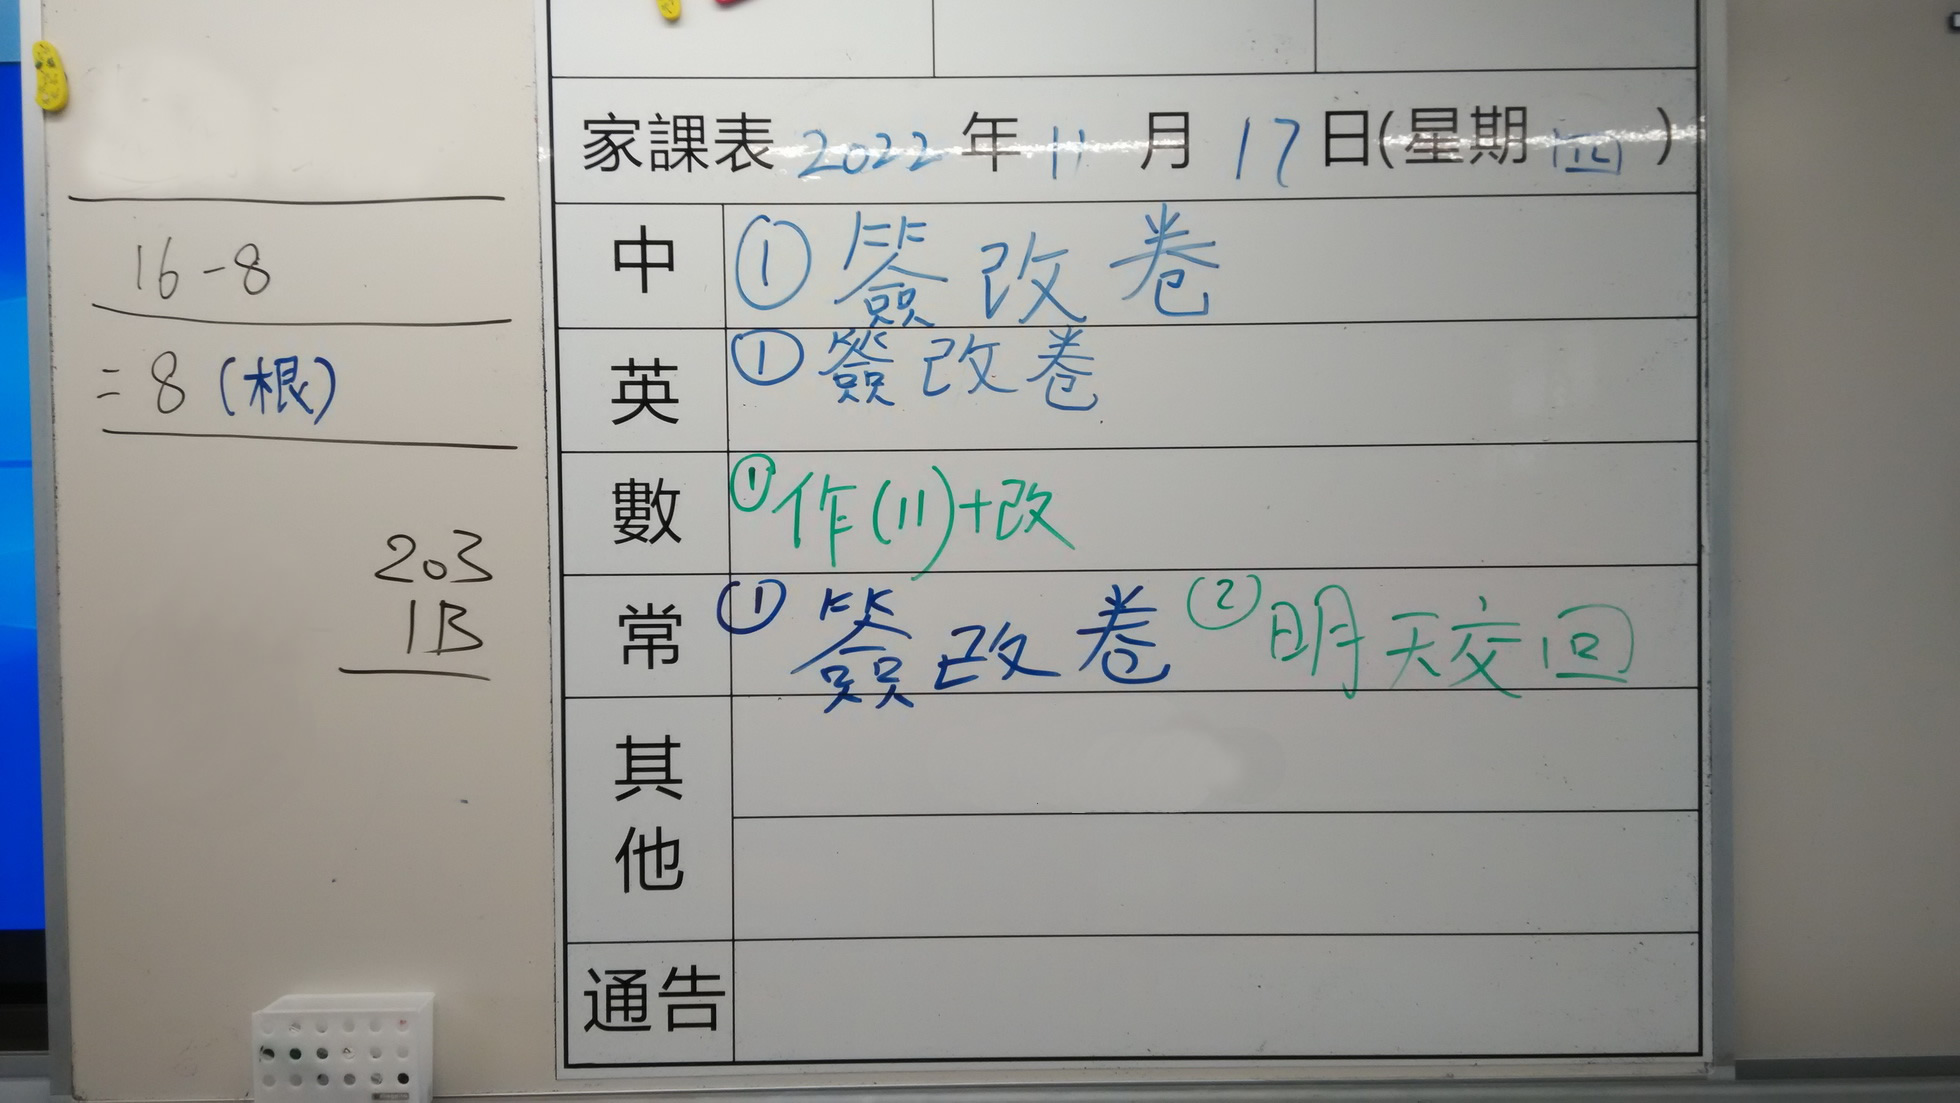 16-8
=8(根)
203
1B
家課表 2022 年 11 月 17 日(星期 四 )
中 ①簽改卷
英 ①簽改卷
數 ①作(11)+改
常 ①簽改卷 ②明天交回
其他
通告